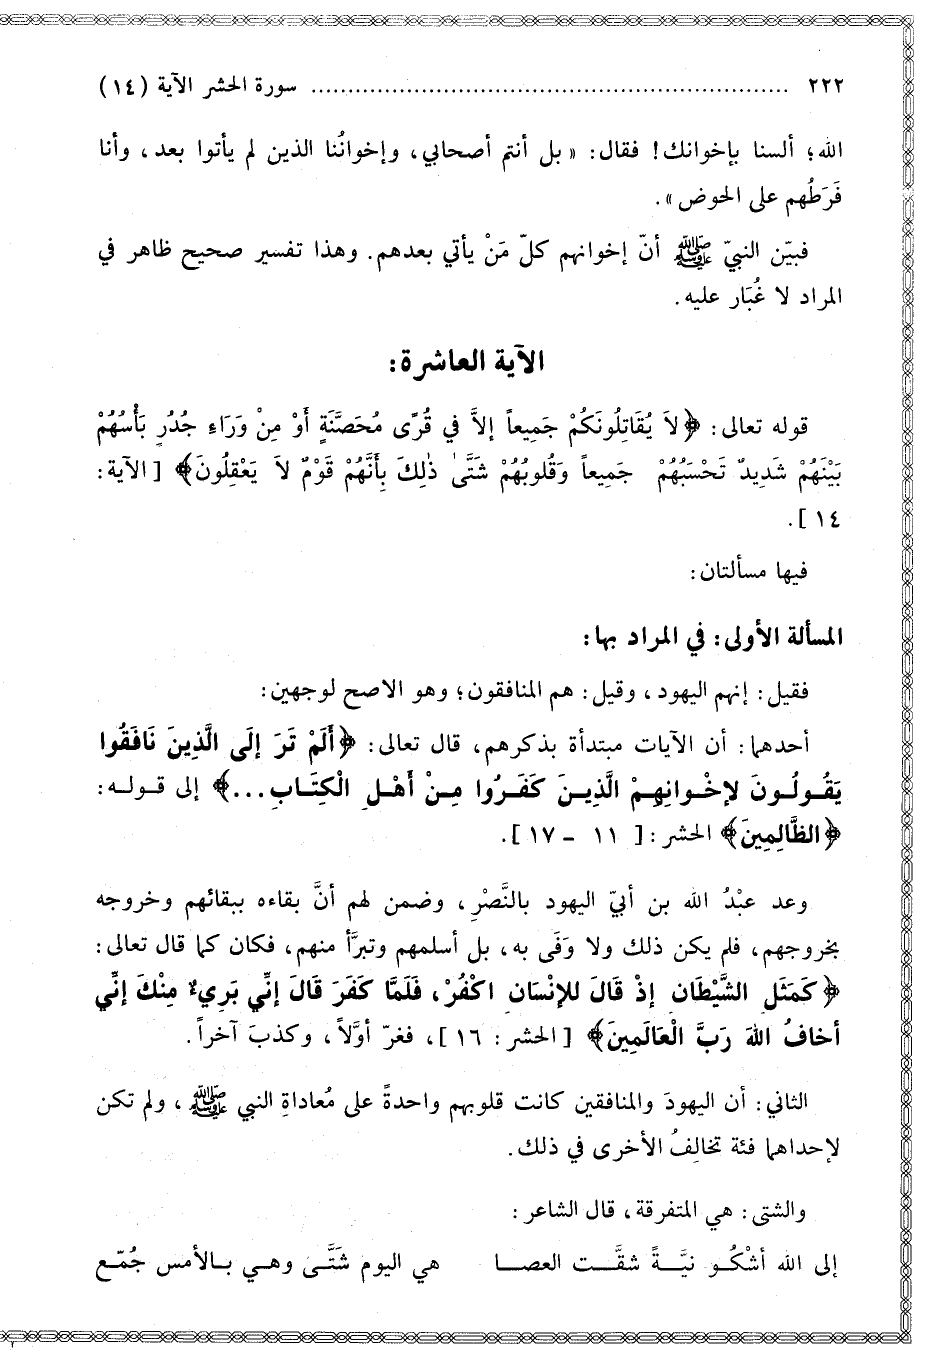 ٢٢٢ ................................................................ سورة الحشر الآية (١٤)
الله؛ ألسنا بإخوانك! فقال: «بل أنتم أصحابي، وإخوانُنا الذين لم يأتوا بعد، وأنا
فَرَطُهم على الحوض».
فبيّن النبيّ ﷺ أنّ إخوانهم كلّ مَنْ يأتي بعدهم. وهذا تفسير صحيح ظاهر في
المراد لا غُبَار عليه.
الآية العاشرة:
قوله تعالى: ﴿لاَ يُقَاتِلُونَكُمْ جَمِيعاً إلاَّ في قُرًى مُحَصَّنَةٍ أَوْ مِنْ وَرَاءِ جُدُرٍ بَأْسُهُمْ
بَيْنَهُمْ شَدِيدٌ تَحْسَبُهُمْ جَمِيعاً وَقُلوبُهُمْ شَتَّىٰ ذٰلِكَ بِأَنَّهُمْ قَوْمٌ لاَ يَعْقِلُونَ﴾ [الآية:
١٤].
فيها مسألتان:
المسألة الأولى: في المراد بها:
فقيل: إنهم اليهود، وقيل: هم المنافقون؛ وهو الاصح لوجهين:
أحدهما: أن الآيات مبتدأة بذكرهم، قال تعالى: ﴿أَلَمْ تَرَ إلَى الَّذِينَ نَافَقُوا
يَقُولُونَ لإخْوانِهِمْ الَّذِينَ كَفَرُوا مِنْ أَهْلِ الْكِتَابِ...﴾ إلى قوله:
﴿الظَّالِمِينَ﴾ الحشر: [١١ - ١٧].
وعد عبْدُ الله بن أبيّ اليهود بالنَّصْرِ، وضمن لهم أنَّ بقاءه ببقائهم وخروجه
بخروجهم، فلم يكن ذلك ولا وَفَى به، بل أسلمهم وتبرَّأ منهم، فكان كما قال تعالى:
﴿كَمَثَلِ الشَّيْطَانِ إذْ قَالَ للإنْسَانِ اكْفُرْ، فَلَمَّا كَفَرَ قَالَ إنِّي بَرِيءٌ مِنْكَ إنِّي
أخافُ اللهَ رَبَّ الْعَالَمِينَ﴾ [الحشر: ١٦]، فغرّ أوَّلاً، وكذبَ آخراً.
الثاني: أن اليهودَ والمنافقين كانت قلوبهم واحدةً على مُعاداةِ النبي ﷺ، ولم تكن
لإحداهما فئة تخالفُ الأخرى في ذلك.
والشتى: هي المتفرقة، قال الشاعر:
إلى الله أشْكُو نيَّةً شقَّت العصا هي اليوم شَتَّى وهي بالأمس جُمّع